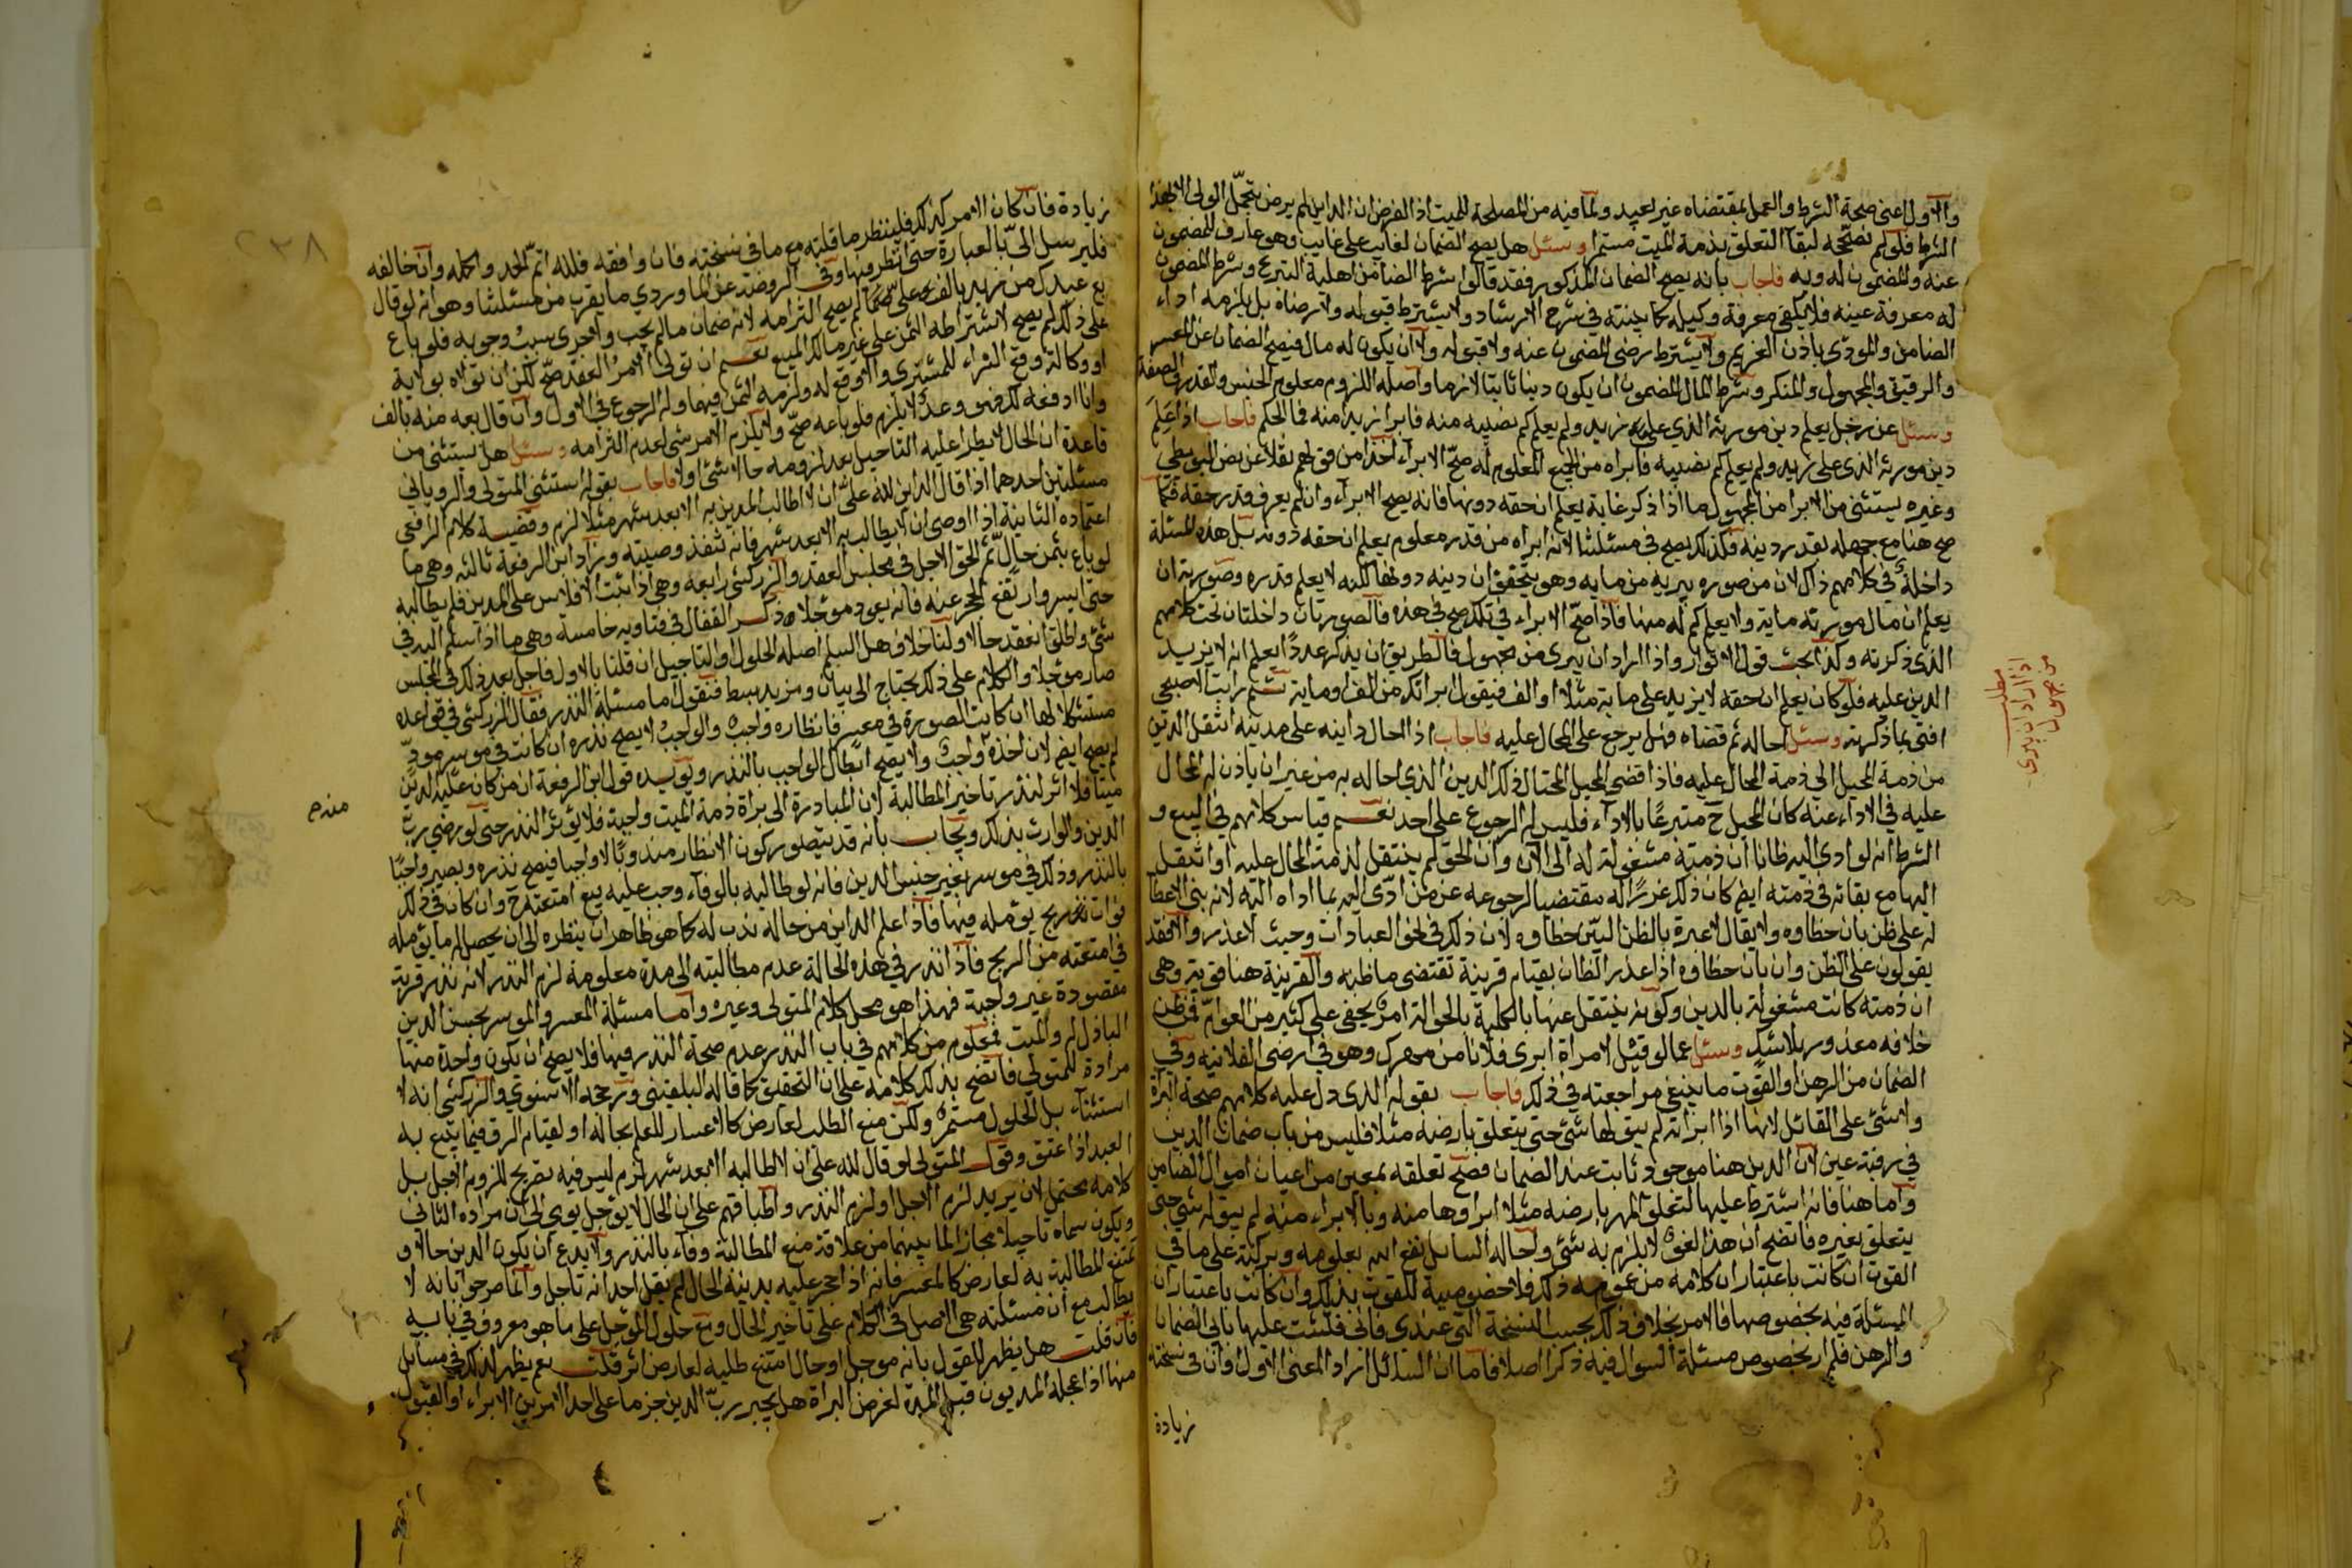 والاول اعني صحة الشرط والعمل بمقتضاه غير بعيد ولما فيه من المصلحة للميت اذ الفرض ان الداين لم يرض بتحمل الولي الا بهذا
الشرط فلو لم نصححه لبقا التعلق بذمة الميت مستمرا وسئل هل يصح الضمان لغايب على غايب وهو عارف المضمون
عنه والمضمون له وبه فاجاب بانه يصح الضمان المذكور فقد قالوا شرط الضامن اهلية التبرع وشرط المضمون
له معرفة عينه فلا يكفي معرفة وكيله كما بينته في شرح الارشاد ولا يشترط قبوله ولا رضاه بل يلزمه اداء
الضامن والمودي باذن الغريم ولا يشترط رضى المضمون عنه ولا قبوله ولا ان يكون له مال فيصح الضمان عن المعسر
والرقيق والمجهول والمنكر وشرط المال المضمون ان يكون دينا ثابتا لازما او اصله اللزوم معلوم الجنس والقدر والصفة
وسئل عن رجل يعلم دين مورثه الذي على زيد ولم يعلم كم نصيبه منه فابرا زيدا منه فما الحكم فاجاب اذا علم
دين مورثه الذي على زيد ولم يعلم كم نصيبه فابراه من الجميع المعلوم له صح الابراء اخذا من قولهم نقلا عن نص البويطي
وغيره يستثنى من الابرا من المجهول ما اذا ذكر غاية يعلم ان حقه دونها فانه يصح الابراء وان لم يعرف قدر حقه فكما
صح هنا مع جهله بقدر دينه فكذلك يصح في مسئلتنا لانه ابراه من قدر معلوم يعلم ان حقه دونه بل هذه المسئلة
داخلة في كلامهم ذاك لان من صوره يبريه من مايه وهو يتحقق ان دينه دونها لكنه لا يعلم قدره وصورته ان
يعلم ان مال مورثه ماية ولا يعلم كم له منها فاذا صح الابراء في تلك صح في هذه فالصورتان داخلتان تحت كلامهم
الذي ذكرته وكذا بحث قول الانوار واذا اراد ان يبرى من مجهول فالطريق ان يذكر عددا يعلم انه لا يزيد
الدين عليه فلو كان يعلم ان حقه لا يزيد على ماية مثلا او الف فيقول ابراتك من الف او ماية ثم رايت الاصبحي
افتى بما ذكرته وسئل احاله ثم قضاه فهل يرجع على المحال عليه فاجاب اذا احال داينه على مدينه انتقل الدين
من ذمة المحيل الى ذمة المحال عليه فاذا قضى المحيل المحتال ذلك الدين الذي احاله به من غير ان ياذن له المحال
عليه في الاداء عنه كان المحيل ح متبرعا بالاداء فليس له الرجوع على احد نعم قياس كلامهم في البيع و
الشرط انه لو ادى اليه ظانا ان ذمته مشغولة له الى الان وان الحق لم ينتقل لذمة المحال عليه او انتقل
اليها مع بقائه في ذمته ايض كان ذلك عذرا له مقتضيا لرجوعه عن من ادى اليه بما اداه اليه لانه بنى الاعطا
له على ظن بان خطاوه ولا يقال لا عبرة بالظن البين خطاوه لان ذلك في نحو العبادات وحيث لا عذر والا فقد
يقولون على الظن وان بان خطاوه اذا عذر الظان بقيام قرينة تقتضي ما ظنه والقرينة هنا قوية وهي
ان ذمته كانت مشغولة بالدين وكونه ينتقل عنها بالكلية بالحوالة امر يخفى على كثير من العوام فمن ظن
خلافه معذور بلا شك وسئل عما لو قيل لامراة ابري فلانا من مهرك وهو في ارضي الفلانيه وفي
الضمان من الرهن او القوت ما ينبغي مراجعته في ذلك فاجاب بقوله الذي دل عليه كلامهم صحة البراة
ولا شئ على القائل لانها اذا ابراته لم يبق لها شئ حتى يتعلق بارضه مثلا فليس من باب ضمان الدين
في رقبة عين لان الدين هنا موجود ثابت عند الضمان فصح تعلقه بمعين من اعيان اموال الضامن
واما هنا فانه اشترط عليها لتعلق المهر بارضه مثلا ابراوها منه وبالابراء منه لم يبق له شئ حتى
يتعلق بغيره فاتضح ان هذا لغو لا يلزم به شئ واحاله السايل نفع الله بعلومه وبركته على ما في
القوت ان كانت باعتبار ان كلامه من عمومه ذلك فلا خصوصية للقوت بذلك وان كانت باعتبار ان
المسئلة فيه بخصوصها فالامر بخلاف ذلك بحسب النسخة التي عندي فاني فتشت عليها بابي الضمان
والرهن فلم ار بخصوص مسئلة السوال فيه ذكرا اصلا فاما ان السائل اراد المعنى الاول او ان في نسخته
زيادة
مطلب
اذا اراد ان يبرى
من مجهول
٢٣٨
زيادة فان كان الامر كذلك فلينظر ما قلته مع ما في نسخته فان وافقه فلله اتم الحمد واكمله وان خالفه
فليرسل الي بالعبارة حتى انظر فيها وفي الروضة عن الماوردي ما يقرب من مسئلتنا وهو انه لو قال
بع عبدك من زيد بالف وعلي لم يصح التزامه لانه ضمان ما لم يجب ولا جرى سبب وجوبه فلو باع
على ذلك لم يصح لاشتراطه الثمن على غير مالك المبيع نعم ان تولى الامر العقد صح لكن ان تولاه بولاية
او وكالة وقع الشراء للمشتري والا وقع له ولزمه الثمن فيهما وله الرجوع في الاول وان قال بعه منه بالف
وانا ادفعه لك فهو وعد لا يلزم فلو باعه صح ولا يلزم الامر شئ لعدم التزامه وسئل هل يستثنى من
قاعدة ان الحال لا يطرا عليه التاجيل بعد لزومه حالا شئ اولا فاجاب بقوله استثنى المتولي والروياني
مسئلتين احدهما اذا قال الداين لله علي ان لا اطالب المدين به الا بعد شهر مثلا لزم وقضية كلام الرافعي
اعتماده الثانية اذا اوصى ان لا يطالب به الا بعد شهر فانه تنفذ وصيته وزاد ابن الرفعة ثالثه وهي ما
لو باع بثمن حال ثم الحق الاجل في مجلس العقد والزركشي رابعة وهي اذا ثبت الافلاس على المدين فلم يطالبه
حتى ايسر وارتفع الحجر عنه فانه يعود موجلا وذكر القفال في فتاويه خامسة وهي ما اذا اسلم اليه في
شئ واطلق انعقد حالا ولنا خلاف هل السلم اصله الحلول او التاجيل ان قلنا بالاول فاجل بعد ذلك في المجلس
صار موجلا والكلام على ذلك يحتاج الى بيان ومزيد بسط فنقول اما مسئلة النذر فقال الزركشي في قواعده
مستشكلا لها ان كانت الصورة في معسر فانظاره واجب والواجب لا يصح نذره وان كانت في موسر مود
لم يصح ايض لان اخذه واجب ولا يصح ابطال الواجب بالنذر ويويده قول ابن الرفعة ان من كان عليه الدين
ميتا فلا اثر لنذر تاخير المطالبة لان المبادرة الى براة ذمة الميت واجبة فلا يوثر النذر حتى لو رضي رب
الدين والوارث بذلك ويجاب بانه قد يتصور كون الانظار مندوبا لا واجبا فيصح نذره ويصير واجبا
بالنذر وذلك في موسر بغير جنس الدين فانه لو طالبه بالوفاء وجب عليه بيع امتعته ح وان كان في ذلك
فوات ربح يومله فيها فاذا علم الداين من حاله ندب له كما هو ظاهر ان ينظره الى ان يحصل له ما يومله
في امتعته من الربح فاذا نذر في هذه الحالة عدم مطالبته الى مدة معلومة لزم النذر لانه نذر قربة
مقصودة غير واجبة فهذا هو محل كلام المتولي وغيره واما مسئلة المعسر والموسر بجنس الدين
الباذل له والميت فمعلوم من كلامهم في باب النذر عدم صحة النذر فيها فلا يصح ان يكون واحدة منها
مرادة للمتولي فاتضح بذلك كلامه على ان التحقيق كما قاله البلقيني ورجحه الاسنوي والزركشي انه لا
استثناء بل الحلول مستمر ولكن منع الطلب لعارض كالاعسار للعلم بحاله او لقيام الرق فيما يتبع به
العبد اذا عتق وقول المتولي لو قال لله علي ان لا اطالبه الا بعد شهر لزم ليس فيه تصريح للزوم الاجل بل
كلامه يحتمل لان يريد لزم الاجل او لزم النذر واطباقهم على ان الحال لا يوجل يومي الى ان مراده الثاني
ويكون سماه تاجيلا مجازا لما بينهما من علاقة منع المطالبة وفاء بالنذر ولا يدع ان يكون الدين حالا و
تمتنع المطالبة به لعارض كالمعسر فانه اذا حجر عليه بدينه الحال لم يقل احد انه تاجل وانما صرحوا بانه لا
يطالب مع ان مسئلته هي الاصل في الكلام على تاخير الحال ومنع حلول الموجل على ما هو معروف في بابه
فان قلت هل يظهر للقول بانه موجل او حال امتنع طلبه لعارض اثر قلت نعم يظهر لذلك في مسائل
منها اذا عجله المديون قبل المدة لغرض البراة هل يجبر رب الدين جزما على احد الامرين الابراء او القبول